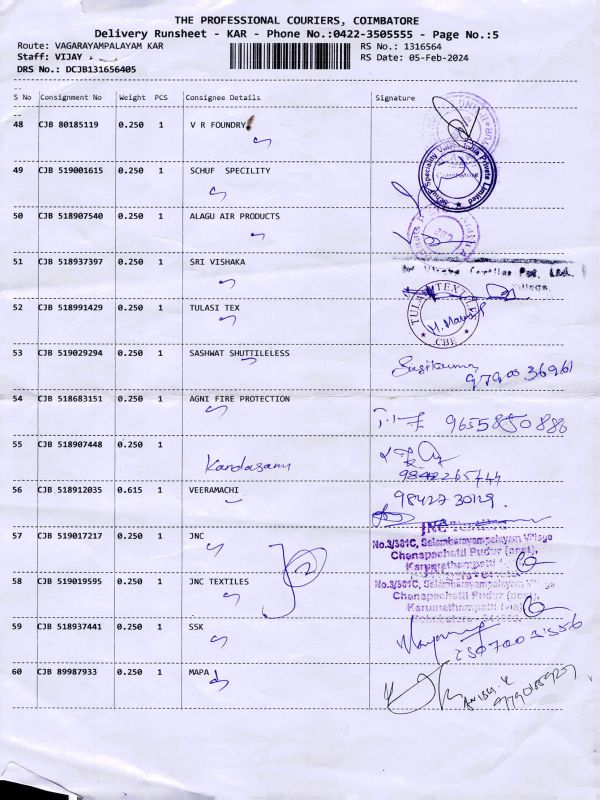 THE PROFESSIONAL COURIERS, COIMBATORE
Delivery Runsheet - KAR - Phone No.:0422-3505555 - Page No.:5
Route: VAGARAYAMPALAYAM KAR RS No.: 1316564
Staff: VIJAY RS Date: 05-Feb-2024
DRS No.: DCJB131656405
S No Consignment No Weight PCS Consignee Details Signature
48 CJB 80185119 0.250 1 V R FOUNDRY
49 CJB 519001615 0.250 1 SCHUF SPECILITY
Schuf Speciality Valves India Private Limited
50 CJB 518907540 0.250 1 ALAGU AIR PRODUCTS
51 CJB 518937397 0.250 1 SRI VISHAKA
52 CJB 518991429 0.250 1 TULASI TEX
TULASI TEXTILE
CBE
53 CJB 519029294 0.250 1 SASHWAT SHUTTILELESS
Sasikumar
54 CJB 518683151 0.250 1 AGNI FIRE PROTECTION
9655850886
55 CJB 518907448 0.250 1
Kandasamy
56 CJB 518912035 0.615 1 VEERAMACHI
57 CJB 519017217 0.250 1 JNC
No.3/301C, Selambarayampalayam Village
Chenapachetti Pudur (post),
58 CJB 519019595 0.250 1 JNC TEXTILES
No.3/301C, Selambarayampalayam Village
Chenapachetti Pudur (post),
59 CJB 518937441 0.250 1 SSK
60 CJB 89987933 0.250 1 MAPA